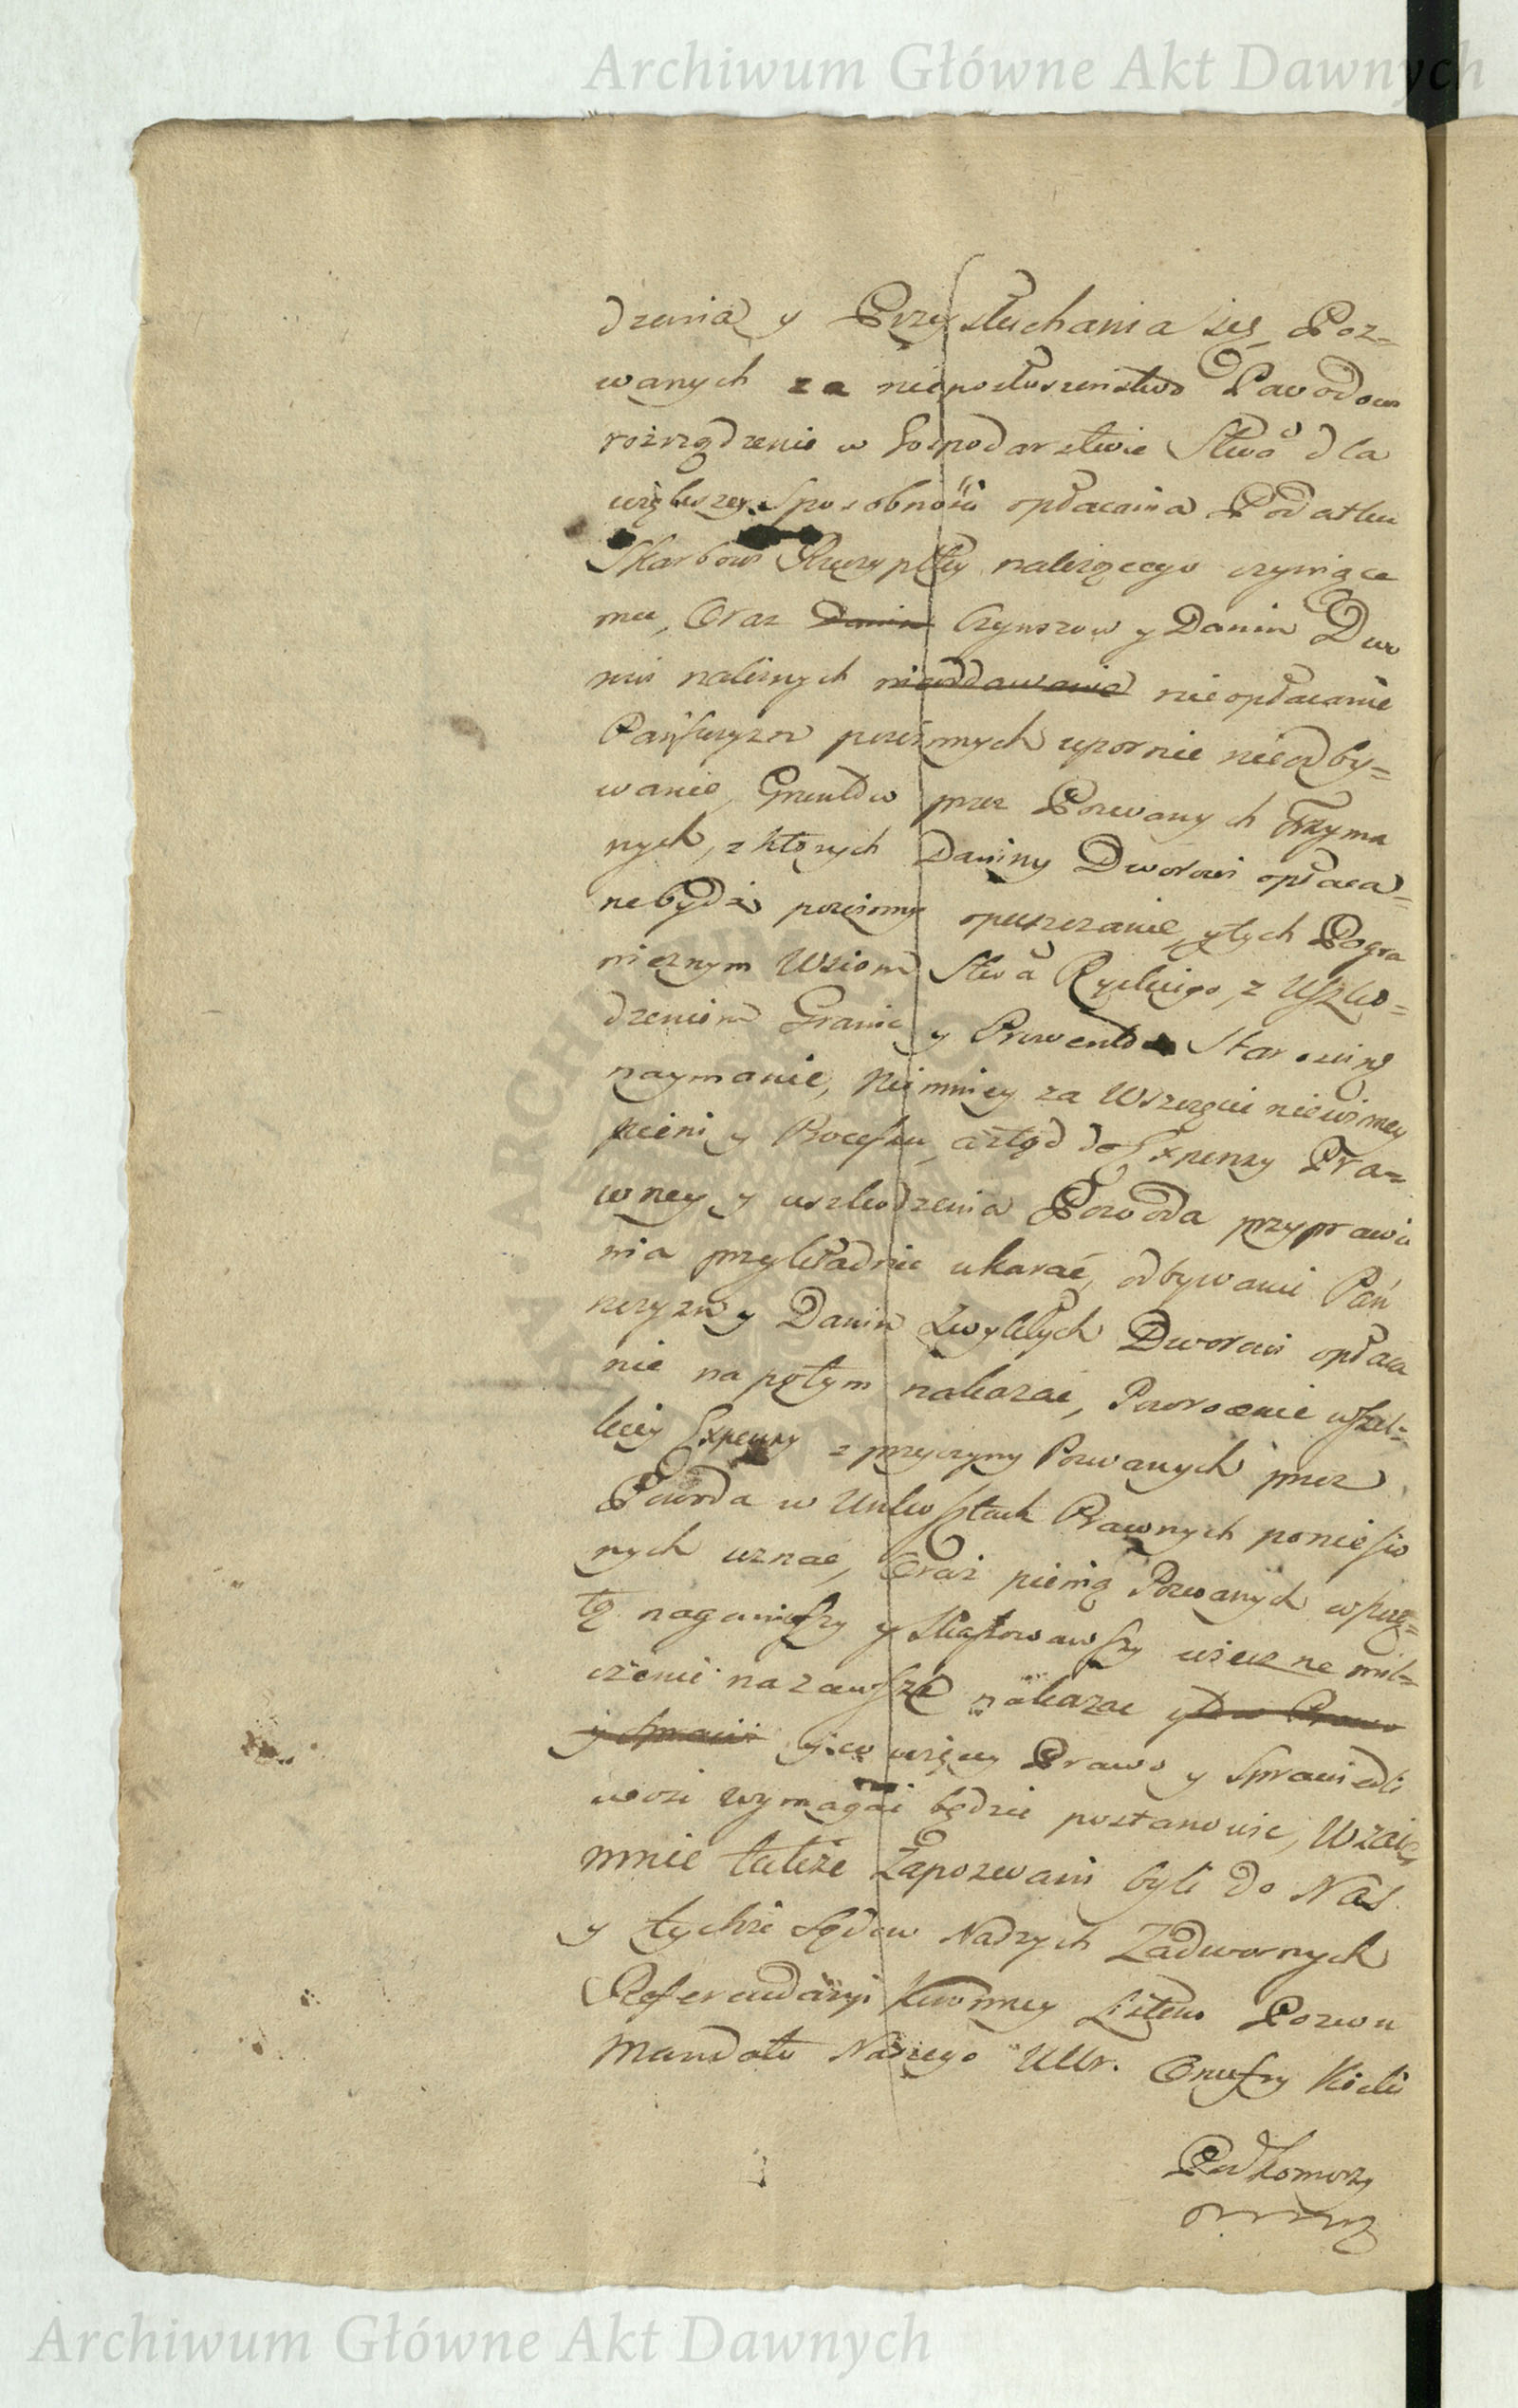 Archiwum Główne Akt Dawnych
dzenia y Przysłuchania się Poz=
wanych za nieposłuszenstwo Powodowi
rozrządzenie w Gospodarstwie Stwa dla
większey sposobności opłacania Podatku
Skarbowi Rzeczypltey należącego czyniące
mu, Oraz Danin Czynszow y Danin Dwo
rowi należnych nieoddawanie nieopłacanie
Pańszczyzn powinnych upornie nieodby=
wanie, Gruntów przez Pozwanych trzyma
nych, z ktorych Daniny Dworowi opłaca=
ne bydź powinny opuszczanie, y tych Pogra
nicznym Wsiom Stwa Ryckiego, z Uszko=
dzeniem Granic y Prowentow Starosciń
naymanie, Niemniey za Wszczęcie niewinney
pieni y Processu, a ztąd do Expensy Pra=
wney y uszkodzenia Powoda przyprawie
nia przykładnie ukarać, odbywanie Pań
szczyzn y Danin Zwykłych Dworowi opłaca
nie na potym nakazać, Powrocenie wszel=
kiey Expensy z przyczyny Pozwanych przez
Powoda w Unkosztach Prawnych poniesio
nych uznać, Oraz pienią Pozwanych wszczę=
tą naganiwszy y skassowawszy wieczne mil=
czenie na zawsze nakazac y Do Prawo
y Sprawie y co więcey Prawo y Sprawiedli
wosc wymagać będzie postanowic, Wzaie
mnie takze Zapozwani byli do Nas
y tychże Sądow Naszych Zadwornych
Referendaryi Koronney Listem Pozwu
Mandatu Naszego Ur. Onufry Kicki
Podkomorzy
Archiwum Główne Akt Dawnych